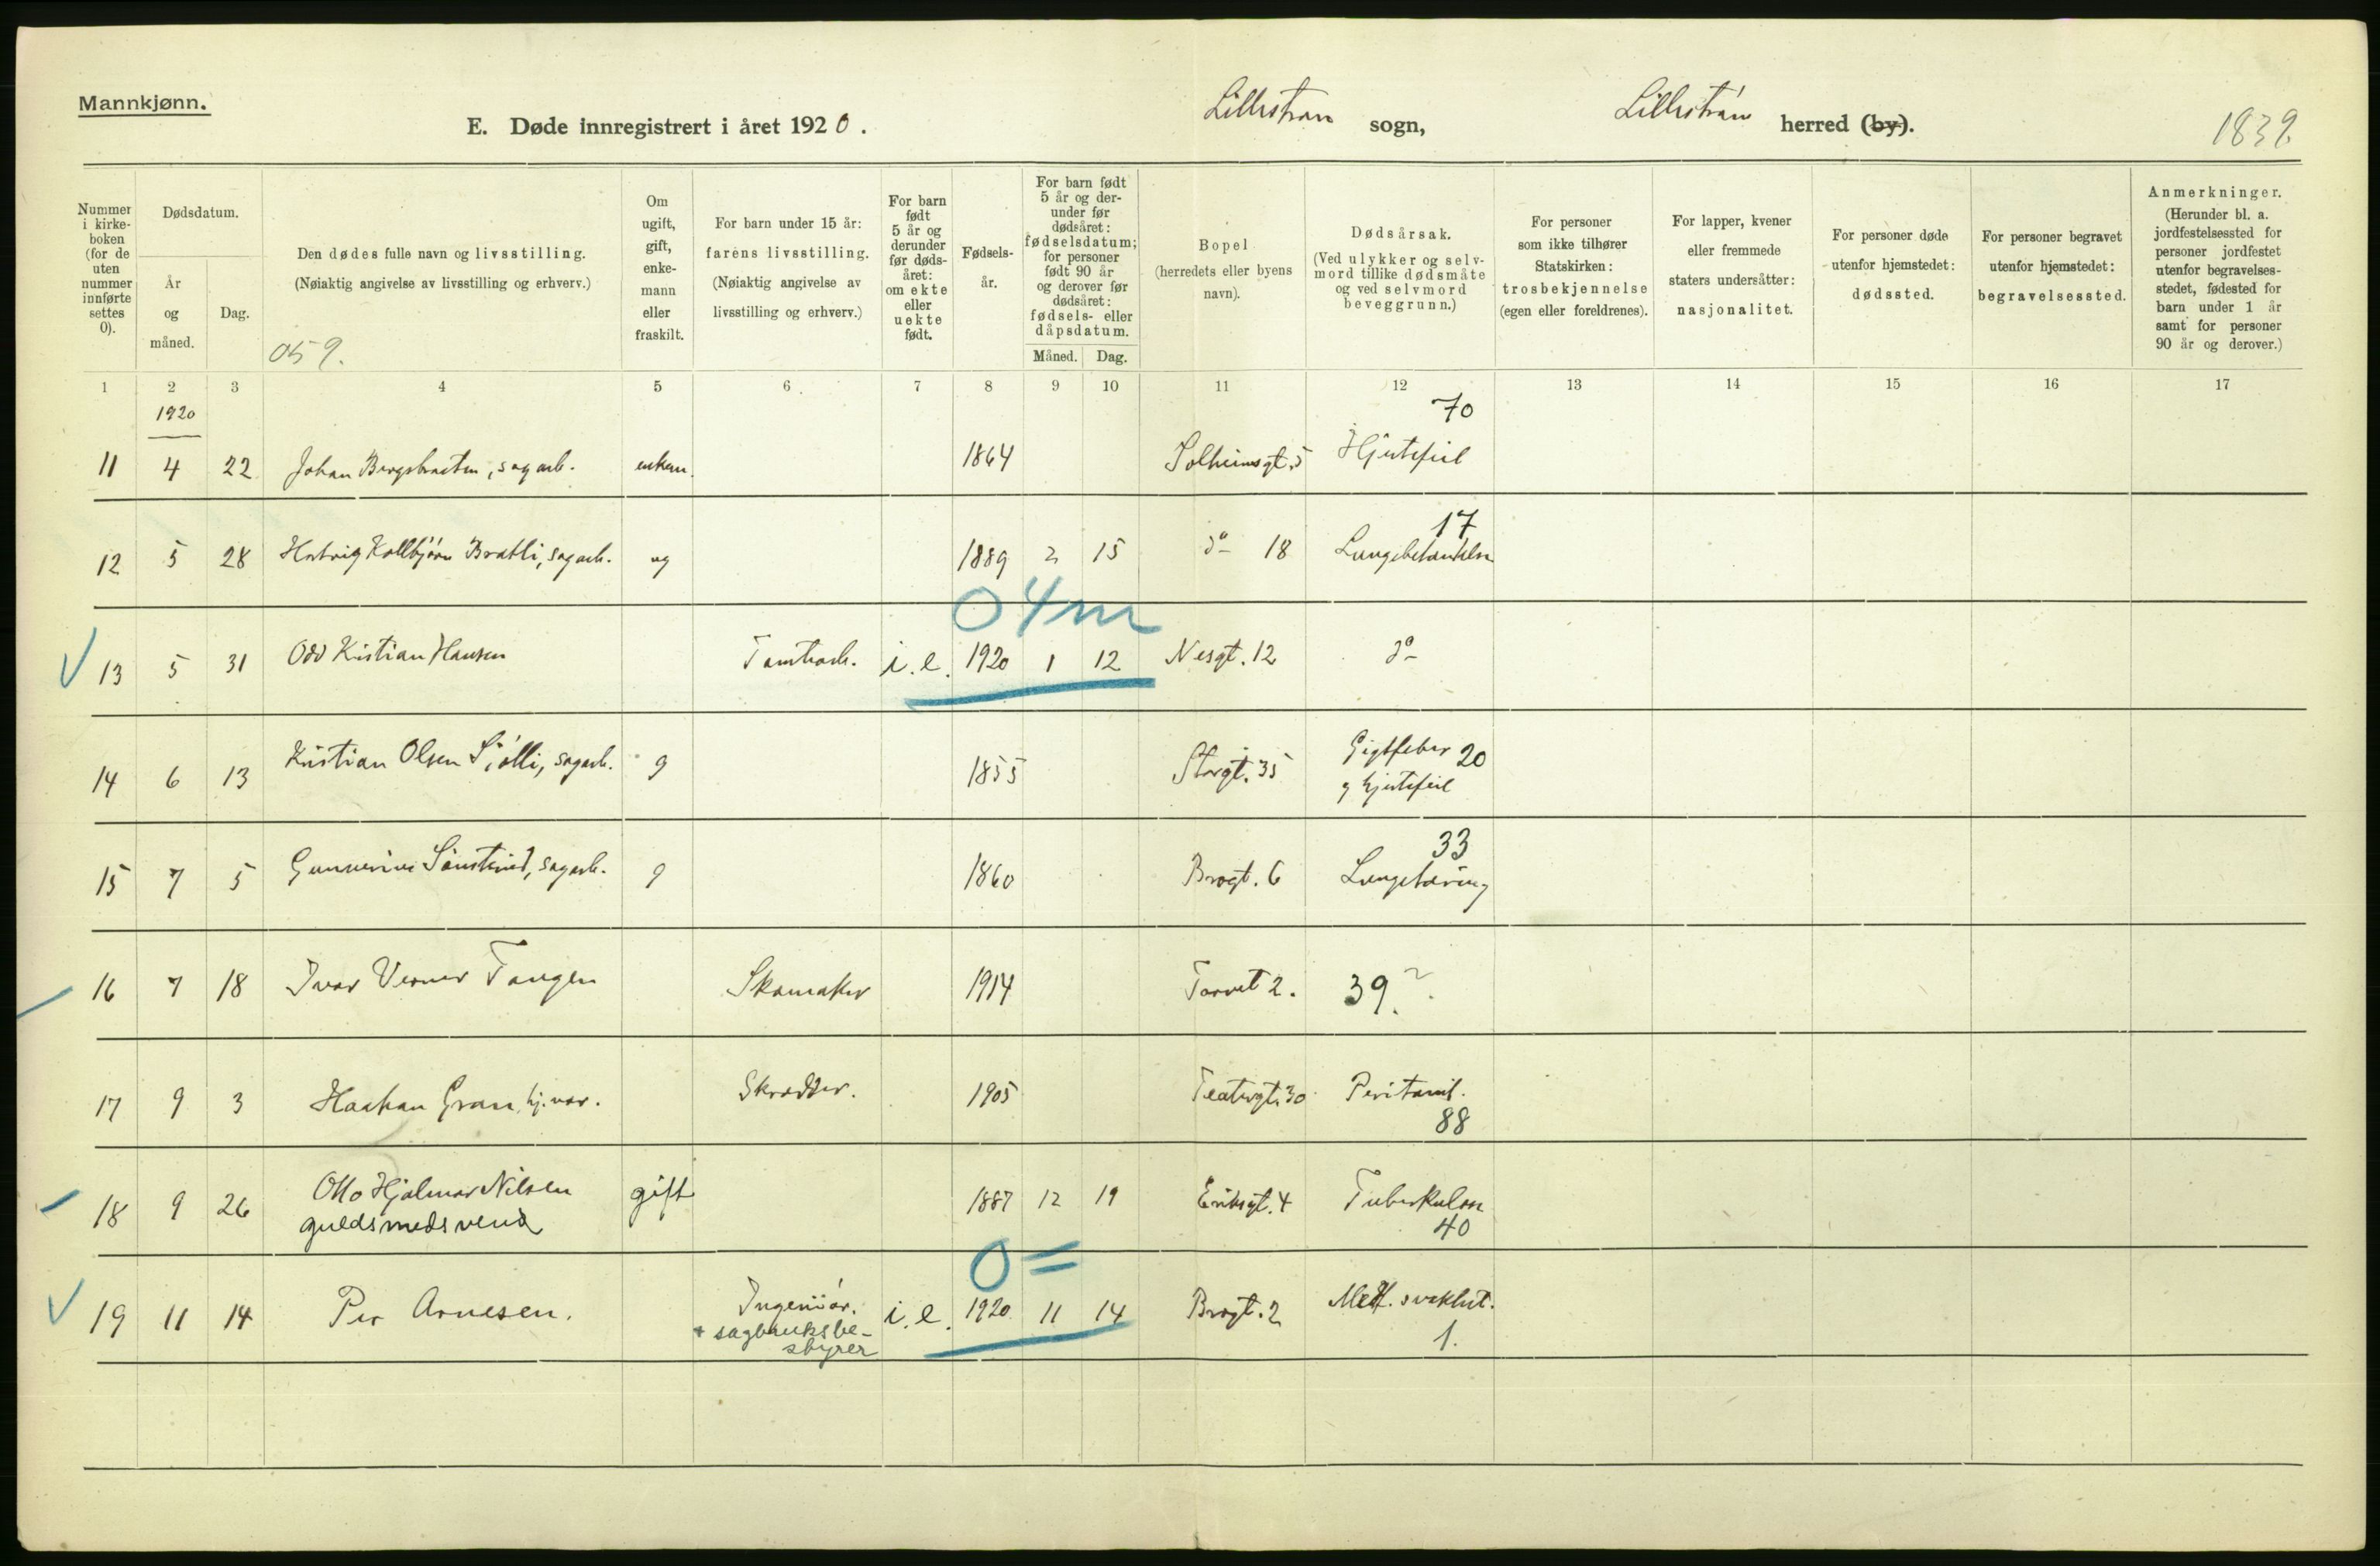 Mannkjønn.
E. Døde innregistrert i året 1920. Lillestrøm sogn, Lillestrøm herred (by). 1839.
Nummer i kirkeboken (for de uten nummer innførte settes 0).
Dødsdatum.
År og måned.
Dag.
Den dødes fulle navn og livsstilling.
(Nøiaktig angivelse av livsstilling og erhverv.)
059.
Om ugift, gift, enkemann eller fraskilt.
For barn under 15 år: farens livsstilling.
(Nøiaktig angivelse av livsstilling og erhverv.)
For barn født 5 år og derunder før dødsåret: om ekte eller uekte født.
Fødselsår.
For barn født 5 år og derunder før dødsåret: fødselsdatum; for personer født 90 år og derover før dødsåret: fødsels- eller dåpsdatum.
Måned. Dag.
Bopel (herredets eller byens navn).
Dødsårsak.
(Ved ulykker og selvmord tillike dødsmåte og ved selvmord beveggrunn.)
For personer som ikke tilhører Statskirken: trosbekjennelse (egen eller foreldrenes).
For lapper, kvener eller fremmede staters undersåtter: nasjonalitet.
For personer døde utenfor hjemstedet: dødssted.
For personer begravet utenfor hjemstedet: begravelsessted.
Anmerkninger.
(Herunder bl. a. jordfestelsessted for personer jordfestet utenfor begravelsesstedet, fødested for barn under 1 år samt for personer 90 år og derover.)
1 2 3 4 5 6 7 8 9 10 11 12 13 14 15 16 17
1920
70
11 4 22 Johan Bergsbraaten, sagarb. enkem. 1864 Solheimsgt. 5 Hjertefeil
17
12 5 28 Kollbjørn Bratli, sagarb. ug 1889 2 15 do 18 Lungebetændelse
0 4 m
13 5 31 Odd Kristian Hansen Tomtearb. i. e. 1920 1 12 Nesgt. 12 do
14 6 13 Kristian Olsen Sjølli, sagarb. g 1855 Storgt. 35 Gigtfeber 20
g hjertefeil
33
15 7 5 sagarb. g 1860 Brogt. 6 Lungetæring
16 7 18 Ivar Verner Tangen Skomaker 1914 Torvet 2. 39 ?
17 9 3 Haakan Gran, hj. vær. Skrædder. 1905 Teatergt. 30 Peritonit.
88
18 9 26 Otto Hjalmar Nilsen gift 1887 12 19 Eriksgt. 4 Tuberkulose
guldsmedsvend 40
0 =
19 11 14 Per Arnesen. Ingeniør. i. e. 1920 11 14 Brogt. 2 Medf. svakhet.
+ sagbruksbe-
styrer 1.